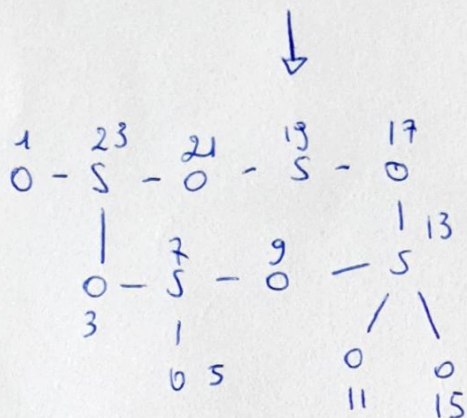 1 23 21 19 17
O - S - O - S - O
7 9 13
O - S - O - S
3
O 5 O O
11 15